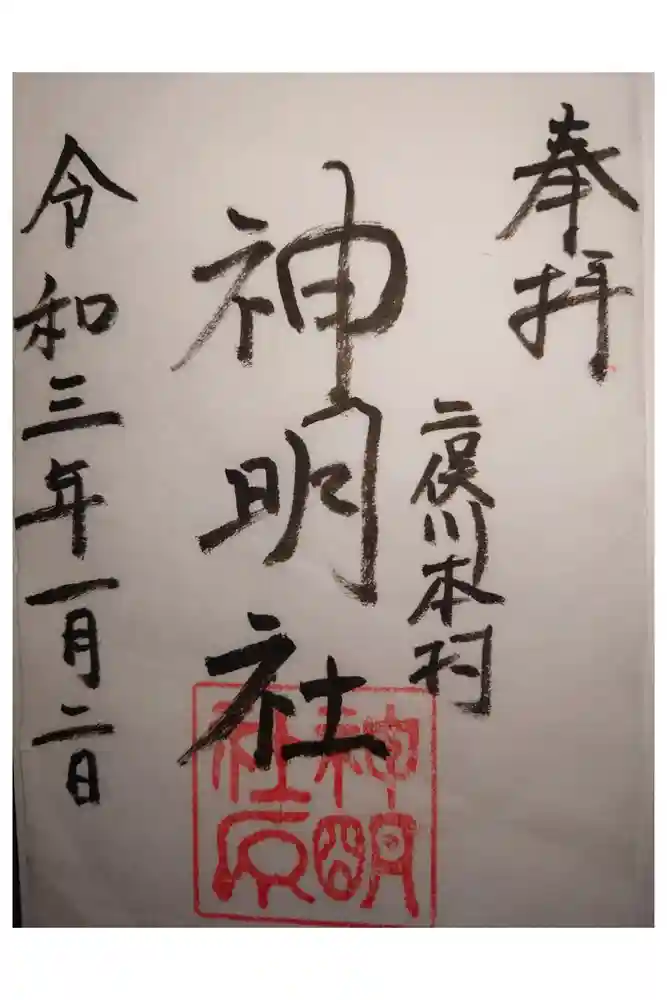 奉拝
二俣川本村
神明社
神明社印
令和三年一月二日